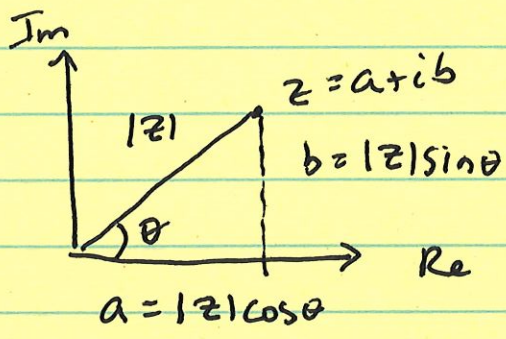 Im
z = a+ib
|z|
b = |z|sinθ
θ
Re
a = |z|cosθ